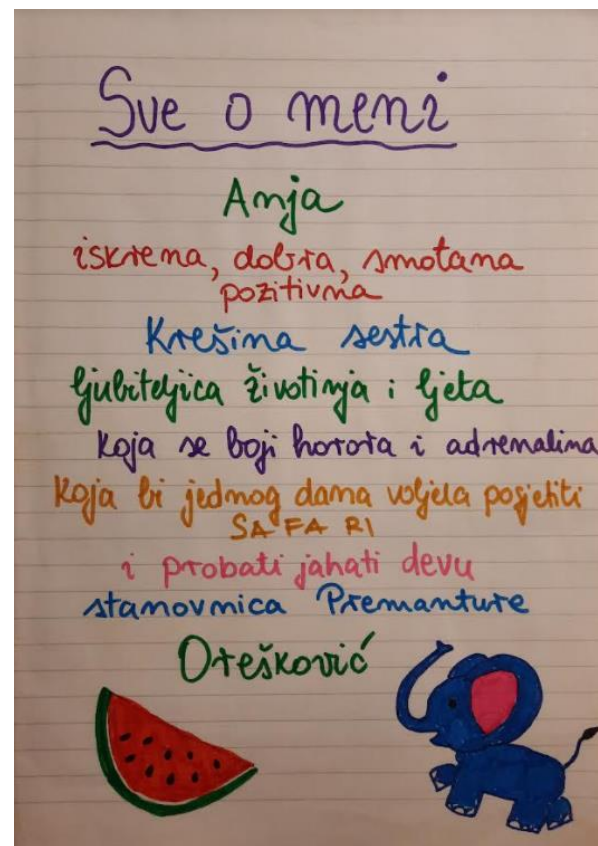 Sve o meni
Anja
iskrena, dobra, smotana
pozitivna
Krešina sestra
ljubiteljica životinja i ljeta
koja se boji horora i adrenalina
koja bi jednog dana voljela posjetiti
SAFARI
i probati jahati devu
stanovnica Premanture
Orešković